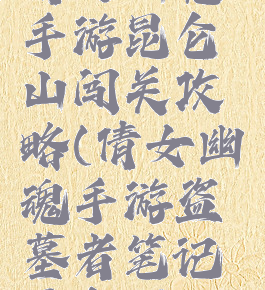 手游昆仑
山闯关攻
略(倩女幽
魂手游盗
墓者笔记